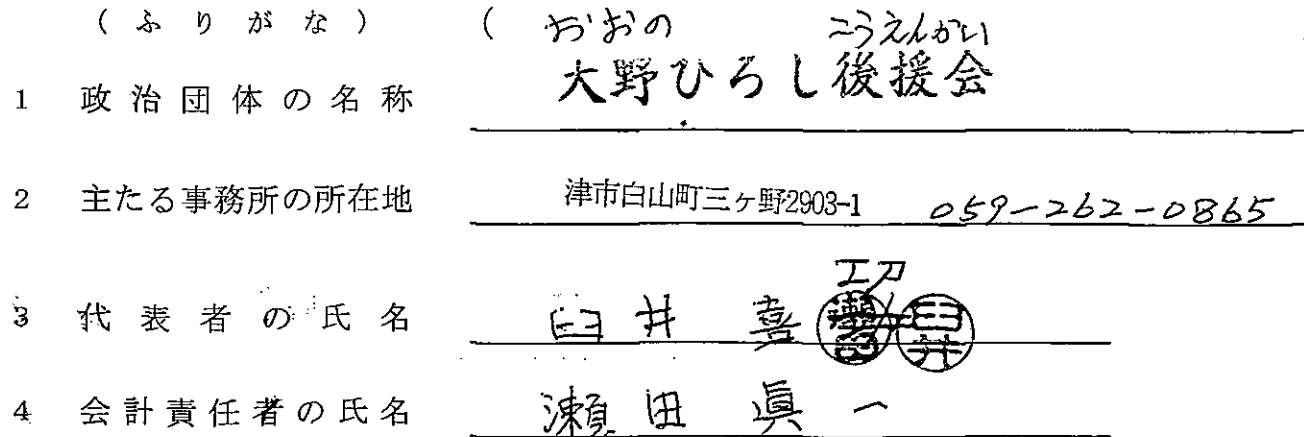 (ふりがな) ( おおの こうえんかい
1 政治団体の名称 大野ひろし後援会
2 主たる事務所の所在地 津市白山町三ヶ野2903-1 059-262-0865
3 代表者の氏名 臼井 喜 臼井
4 会計責任者の氏名 瀬田 眞一